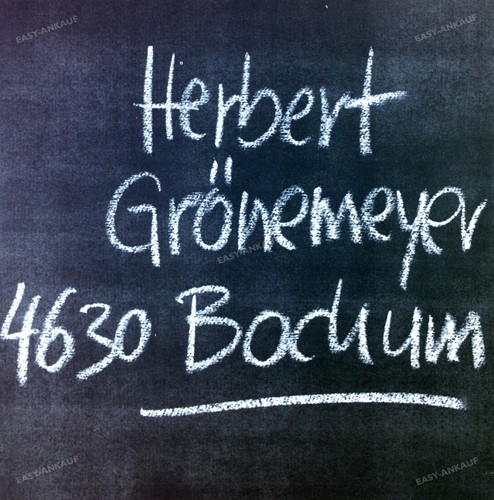 EASY-ANKAUF
EASY-ANKAUF
Herbert
Grönemeyer
EASY-ANKAUF
4630 Bochum
EASY-ANKAUF
EASY-ANKAUF